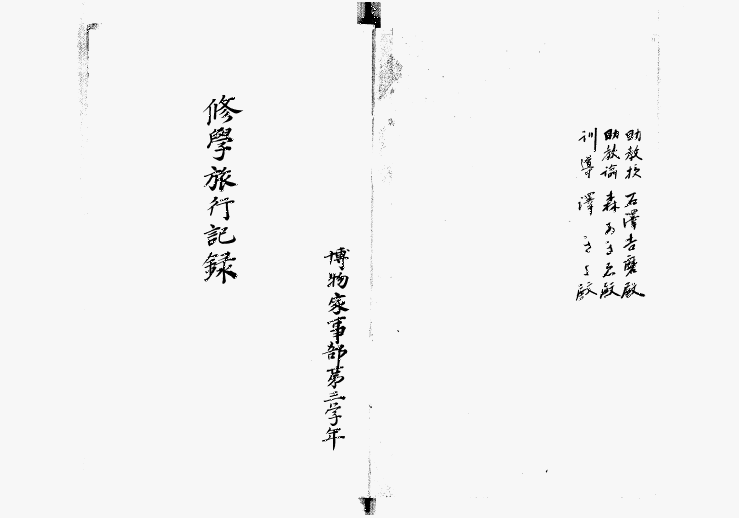 助教授 石澤吉磨殿
助教諭 森あき殿
訓導 澤 殿
博物家事部第三学年
修學旅行記録